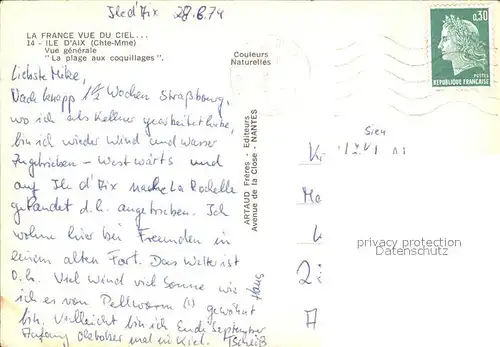 Ile d'Aix 28.6.74
LA FRANCE VUE DU CIEL...
14 - ILE D'AIX (Chte-Mme)
Vue générale
"La plage aux coquillages".
Couleurs
Naturelles
0,30
POSTES
REPUBLIQUE FRANÇAISE
Liebste Mike,
Nach knapp 1 1/2 Wochen Straßbourg,
wo ich als Kellner gearbeitet habe,
bin ich wieder Wind und Wasser
zugetrieben - Westwärts und
auf Ile d'Aix nahe La Rochelle
gelandet d.h. angetrieben. Ich
wohne hier bei Freunden in
einem alten Fort. Das Wetter ist
o.k. Viel Wind viel Sonne wie
ich es von Pellworm (!) gewöhnt
bin. Vielleicht bin ich Ende September
Anfang Oktober mal in Kiel. Tschüß
Hans
ARTAUD Frères - Editeurs
Avenue de la Close - NANTES
privacy protection
Datenschutz